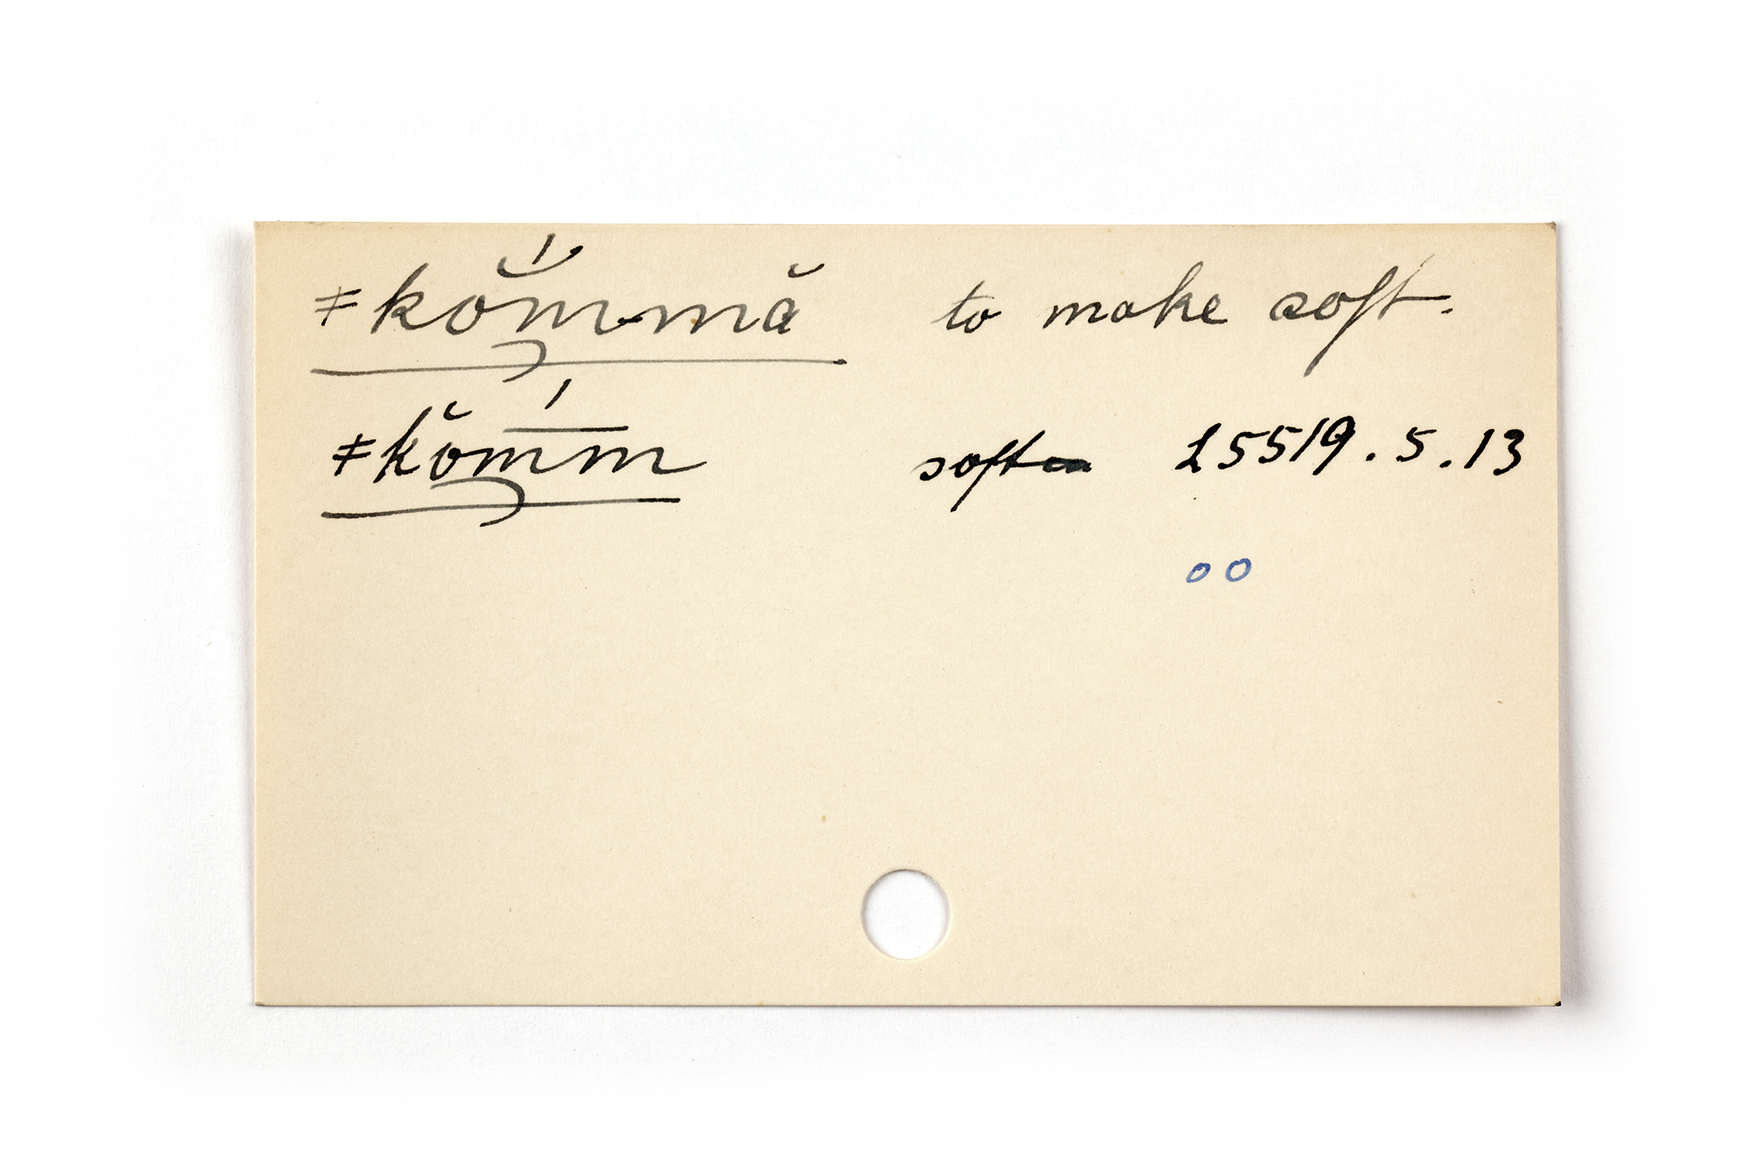 ǂkŏ́m̆mă to make soft.
ǂkŏm̄́m soft L5519.5.13
oo